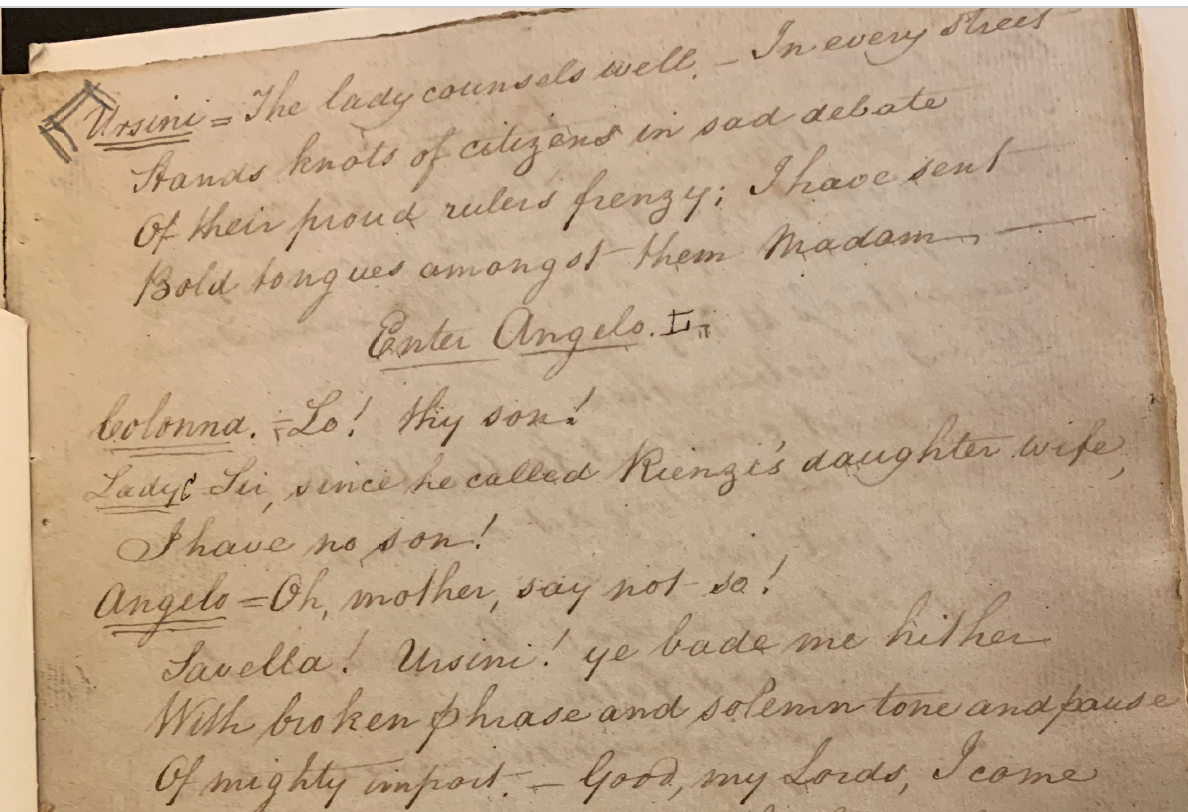 Ursini = The lady counsels well. - In every street
Stands knots of citizens in sad debate
Of their proud rulers frenzy; I have sent
Bold tongues amongst them Madam, —
Enter Angelo. L
Colonna. = Lo! thy son!
Lady C Sir, since he called Rienzi's daughter wife,
I have no son!
Angelo = Oh, mother, say not so!
Savella! Ursini! ye bade me hither
With broken phrase and solemn tone and pause
Of mighty import. - Good, my Lords, I come